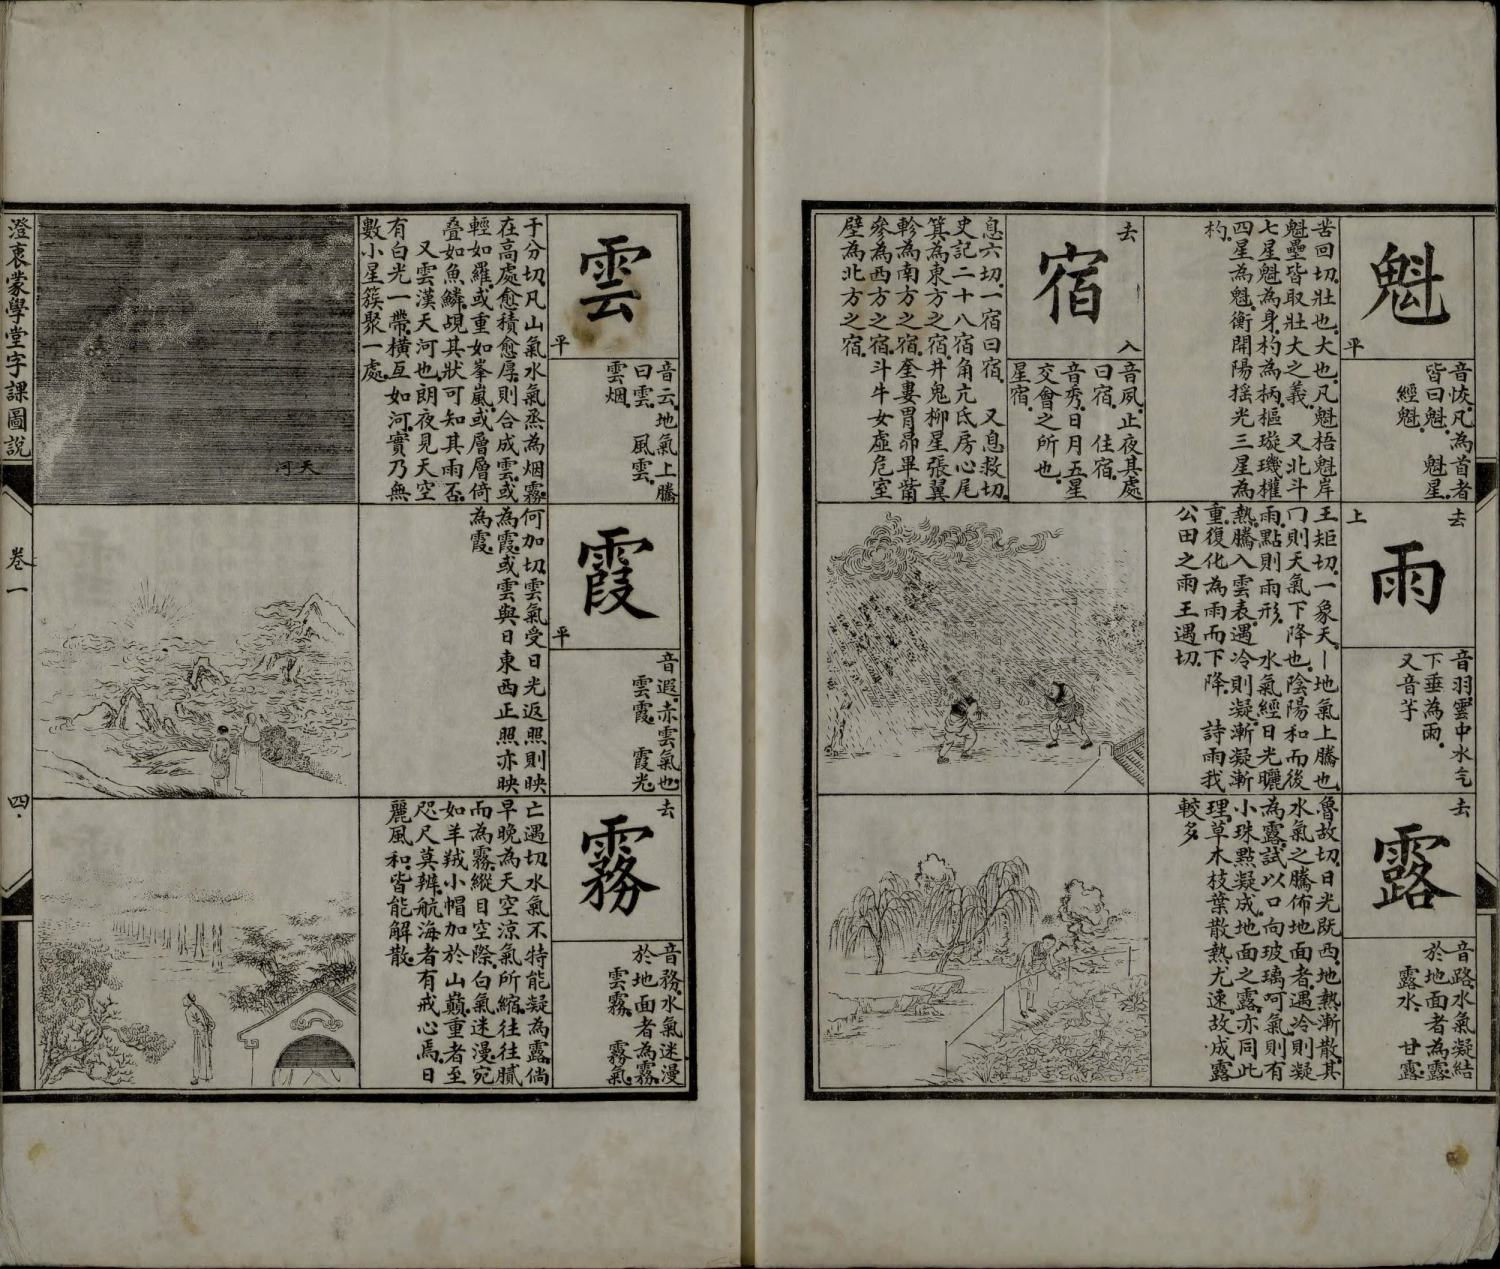 魁
平
音恢。凡為首者
皆曰魁。　魁星。
經魁。
苦回切。壯也。大也。凡魁梧魁岸
魁壘皆取壯大之義。　又北斗
七星魁為身。杓為柄。樞璇璣權
四星為魁。衡開陽搖光三星為
杓。
宿
去
入
音夙。止夜其處
曰宿。　住宿。
音秀。日月五星
交會之所也。
星宿。
息六切。一宿曰宿。　又息救切。
史記二十八宿角亢氐房心尾
箕為東方之宿。井鬼柳星張翼
軫為南方之宿。奎婁胃昴畢觜
參為西方之宿。斗牛女虛危室
壁為北方之宿。
雨
去
上
音羽。雲中水气
下垂為雨。
又音芋
王矩切。一象天。丨地氣上騰也。
冂則天氣下降也。陰陽和而後
雨。點則雨形。　水氣經日光曬
熱。騰入雲表。遇冷則凝。漸凝漸
重。復化為雨而下降。　詩雨我
公田之雨王遇切。
露
去
音路。水氣凝結
於地面者為露。
露水。　甘露。
魯故切。日光既西。地熱漸散。其
水氣之騰佈地面者。遇冷則凝
為露。試以口向玻璃呵氣。則有
小珠點凝成。地面之露。亦同此
理。草木枝葉散熱尤速。故成露
較多
雲
平
音云。地氣上騰
曰雲。　風雲。
雲烟。
于分切。凡山氣水氣烝為烟霧
在高處愈積愈厚。則合成雲。或
輕如羅。或重如峯嵐。或層層倚
疊如魚鱗。覘其狀可知其雨否。
又雲漢天河也。朗夜見天空
有白光一帶。橫亙如河。實乃無
數小星簇聚一處。
天河
霞
平
音遐。赤雲氣也。
雲霞。　霞光
何加切。雲氣受日光返照則映
為霞。或雲與日東西正照亦映
為霞。
霧
去
音務。水氣迷漫
於地面者為霧。
雲霧。　霧氣。
亡遇切。水氣不特能凝為露。倘
早晚為天空涼氣所縮。往往膩
而為霧。縱目空際。白氣迷漫。宛
如羊羢小帽加於山巔。重者至
咫尺莫辨。航海者有戒心焉。日
麗風和。皆能解散。
澄衷蒙學堂字課圖說
卷一
四